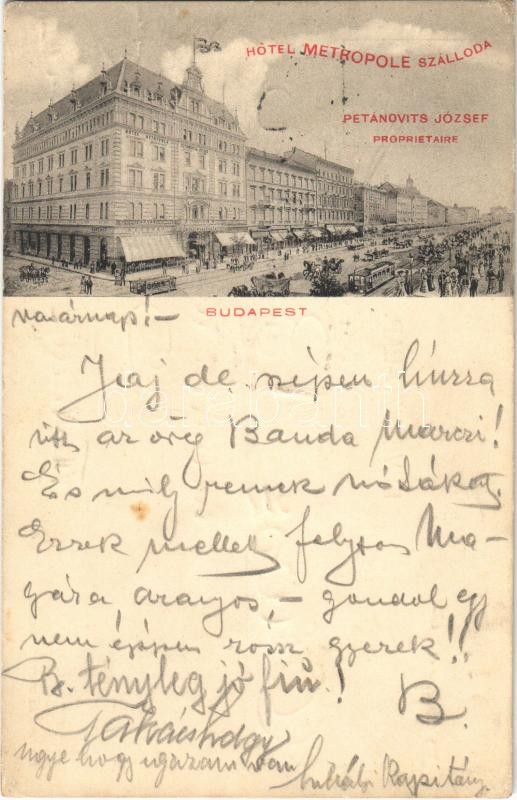 HÔTEL METROPOLE SZÁLLODA
PETÁNOVITS JÓZSEF
PROPRIETAIRE
BUDAPEST
vasárnap! –
Jaj de szépen húzza
itt az öreg Banda Marczi!
És mily remek nótákat.
Ezek mellett folyton Ma-
gára, aranyos, – gondol egy
nem éppen rossz gyerek!!
B. tényleg jó fiú! B.
Takácshogy
ugye hogy igazam van
Kapitány